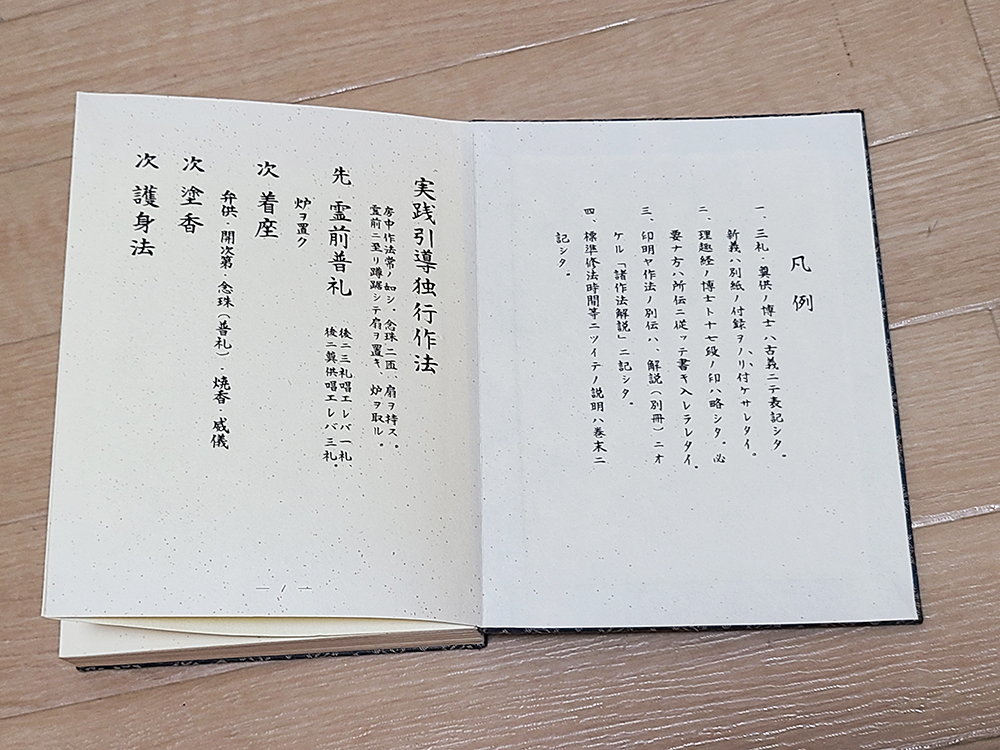 凡例
一、三礼・奠供ノ博士ハ古義ニテ表記シタ。
新義ハ別紙ノ付録ヲノリ付ケサレタイ。
二、理趣経ノ博士ト十七段ノ印ハ略シタ。必
要ナ方ハ所伝ニ従ッテ書キ入レラレタイ。
三、印明ヤ作法ノ別伝ハ、解説(別冊)ニオ
ケル「諸作法解説」ニ記シタ。
四、標準修法時間等ニツイテノ説明ハ巻末ニ
記シタ。
実践引導独行作法
房中作法常ノ如シ。念珠二匝、扇ヲ持ス。
霊前ニ至リ蹲踞シテ扇ヲ置キ、炉ヲ取ル。
先 霊前普礼 後ニ三礼唱エレバ一礼、
後ニ奠供唱エレバ三礼。
炉ヲ置ク
次 着座
弁供・開次第・念珠(普礼)・焼香・威儀
次 塗香
次 護身法
— 1 —